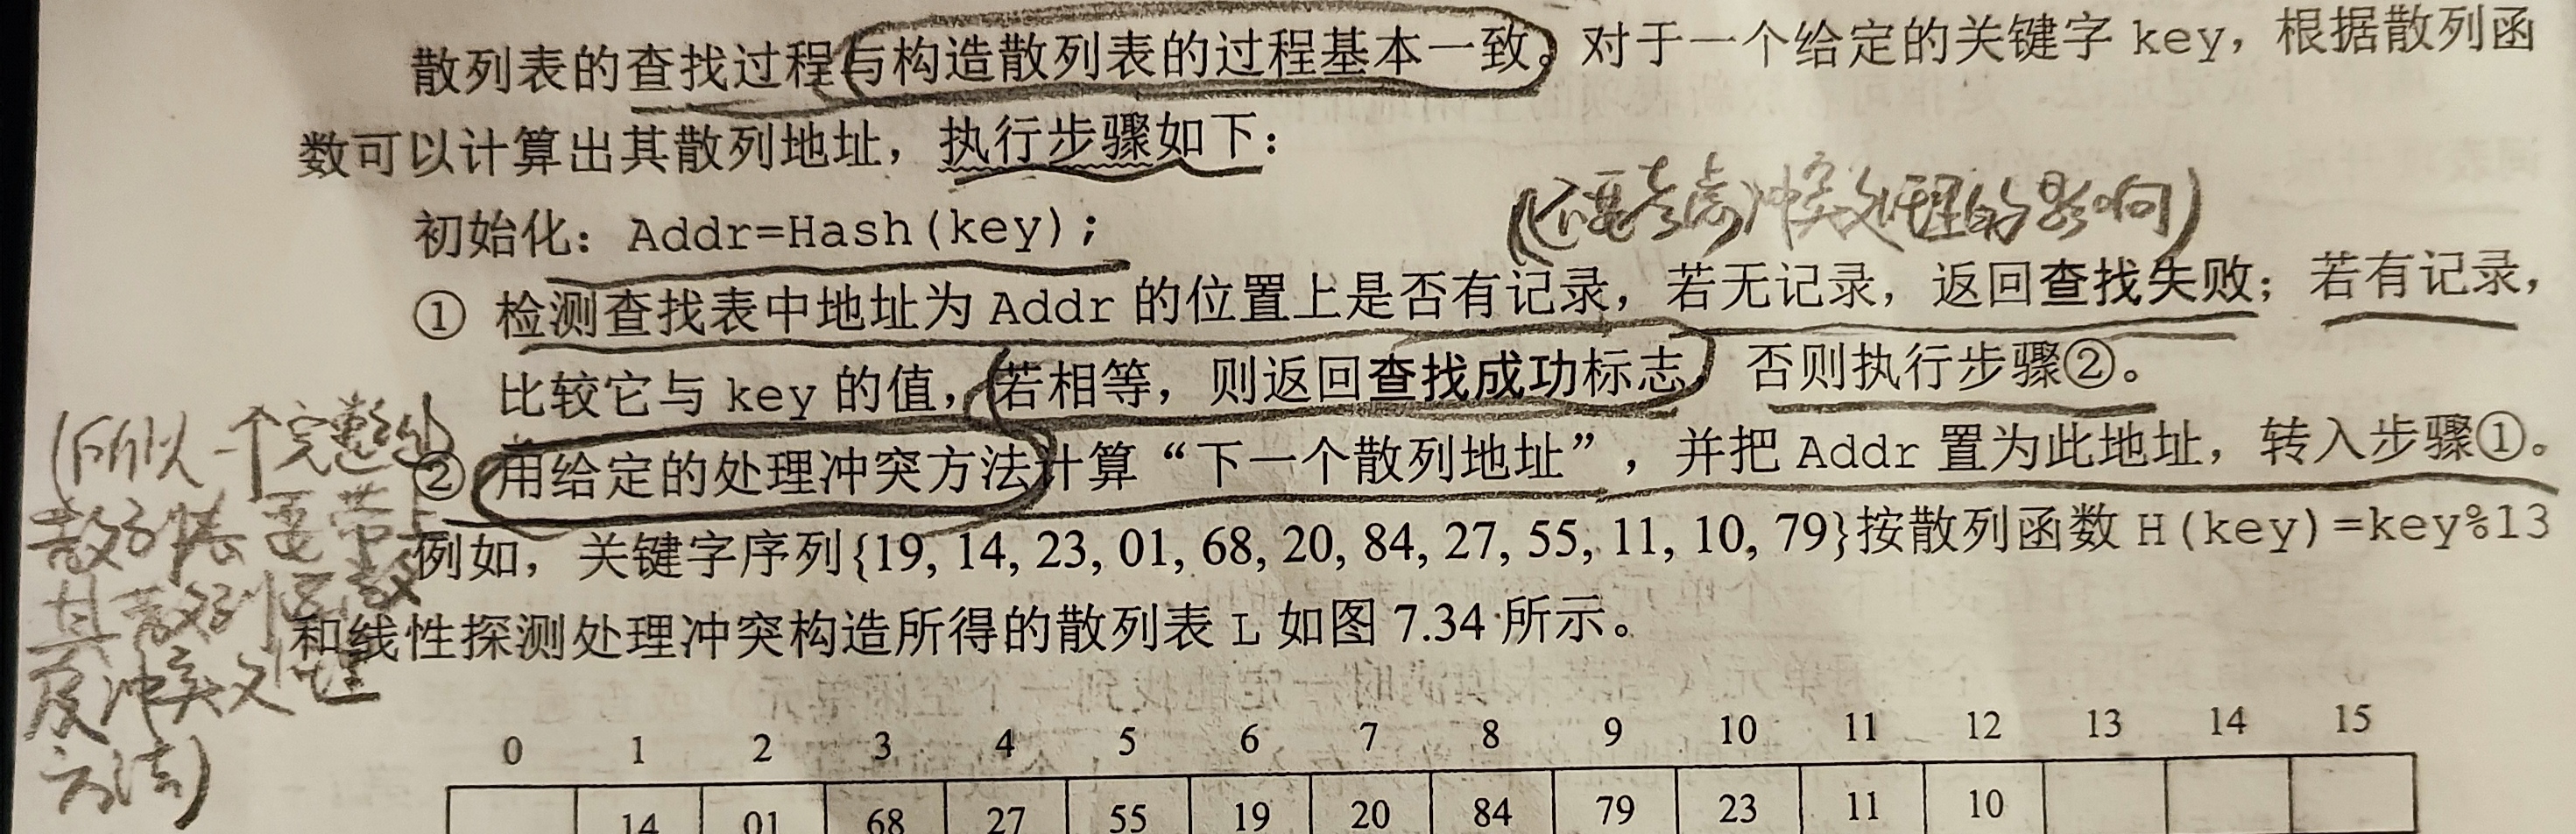 散列表的查找过程与构造散列表的过程基本一致。对于一个给定的关键字 key，根据散列函
数可以计算出其散列地址，执行步骤如下：
初始化：Addr=Hash(key);
(还要考虑冲突处理的影响)
① 检测查找表中地址为 Addr 的位置上是否有记录，若无记录，返回查找失败；若有记录，
比较它与 key 的值，若相等，则返回查找成功标志，否则执行步骤②。
② 用给定的处理冲突方法计算“下一个散列地址”，并把 Addr 置为此地址，转入步骤①。
例如，关键字序列{19, 14, 23, 01, 68, 20, 84, 27, 55, 11, 10, 79}按散列函数 H(key)=key%13
和线性探测处理冲突构造所得的散列表 L 如图 7.34 所示。
(所以一个完整的
散列表要带上
其散列函数
及冲突处理
方法)
0 1 2 3 4 5 6 7 8 9 10 11 12 13 14 15
14 01 68 27 55 19 20 84 79 23 11 10